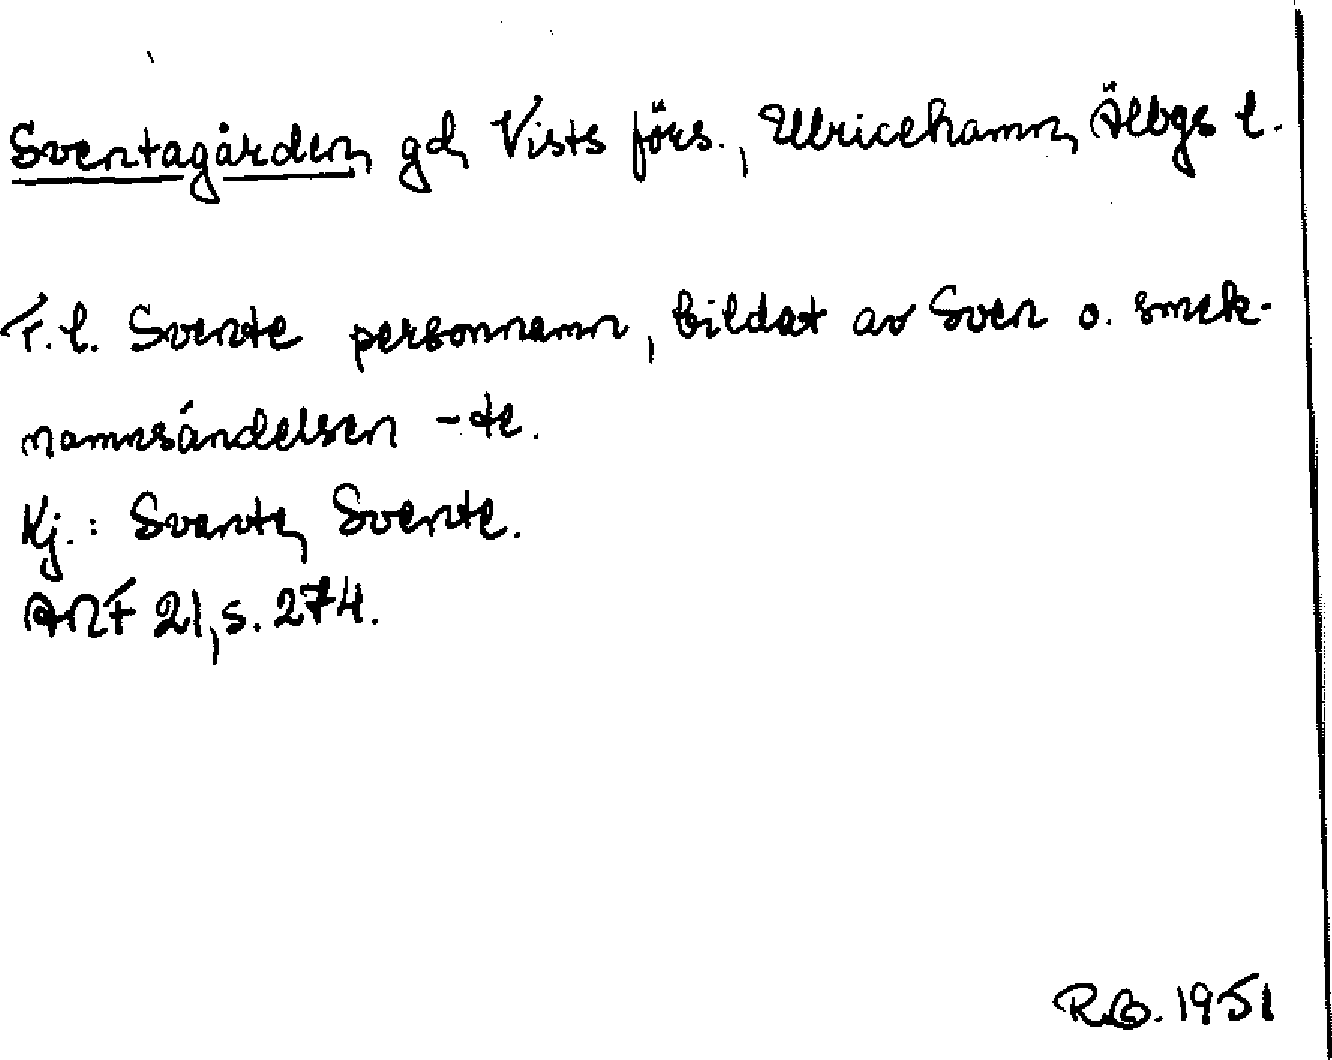 Sventagården, gd, Vists förs., Ulricehamn, Älvbgs l.
F.l. Svente personnamn, bildat av Sven o. smek-
namnsändelsen -te.
Kj.: Svante, Svente.
ANF 21, s. 274.
R.G. 1951